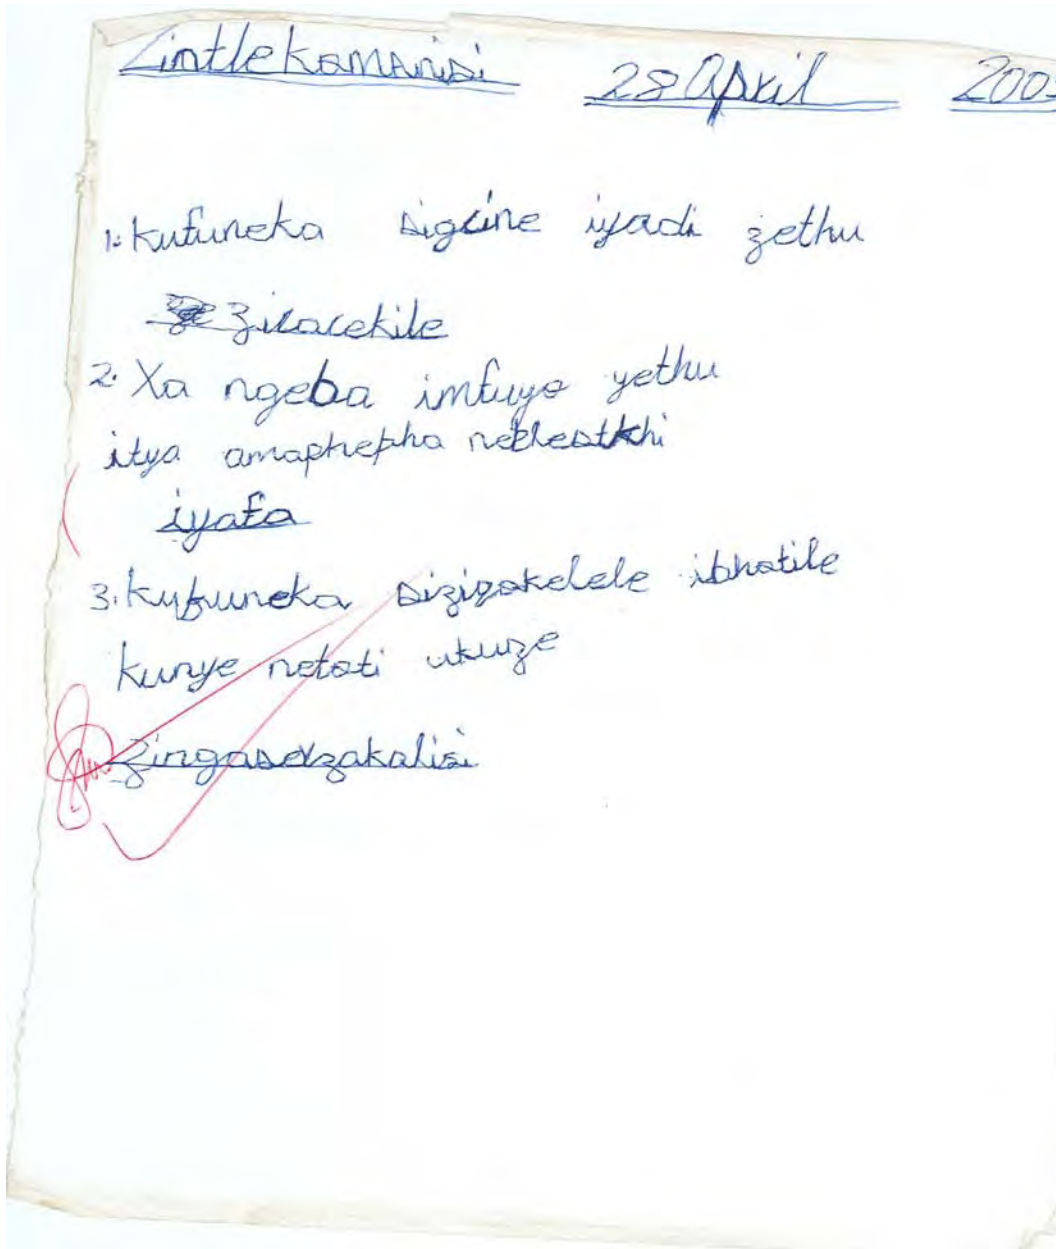 Zintle kamnisi 28 April 200
1. kufuneka sigcine iyadi zethu
zicocekile
2. Xa ngeba imfuyo yethu
itya amaphepha
iyafa
3. kufuneka sizigokelele ibhatile
kunye netoti ukuze